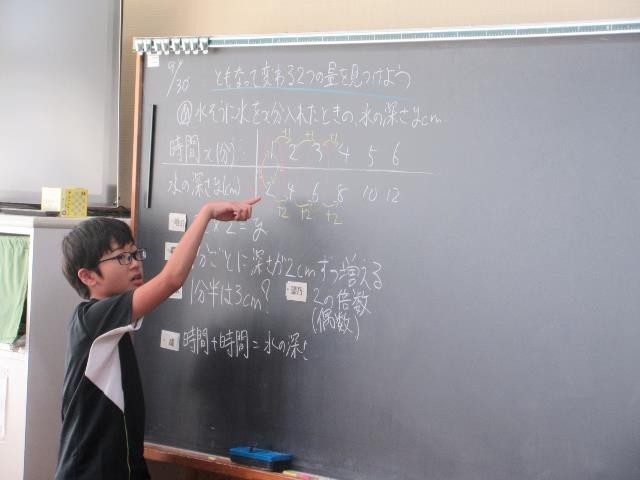 9/30
ともなって変わる2つの量を見つけよう
水そうに水をx分入れたときの、水の深さycm
時間x(分) 1 2 3 4 5 6
+1 +1 +1
水の深さy(cm) 2 4 6 8 10 12
+2 +2 +2
×2=y
分ごとに深さが2cmずつ増える
1分半は3cm?
2の倍数
(偶数)
時間+時間=水の深さ